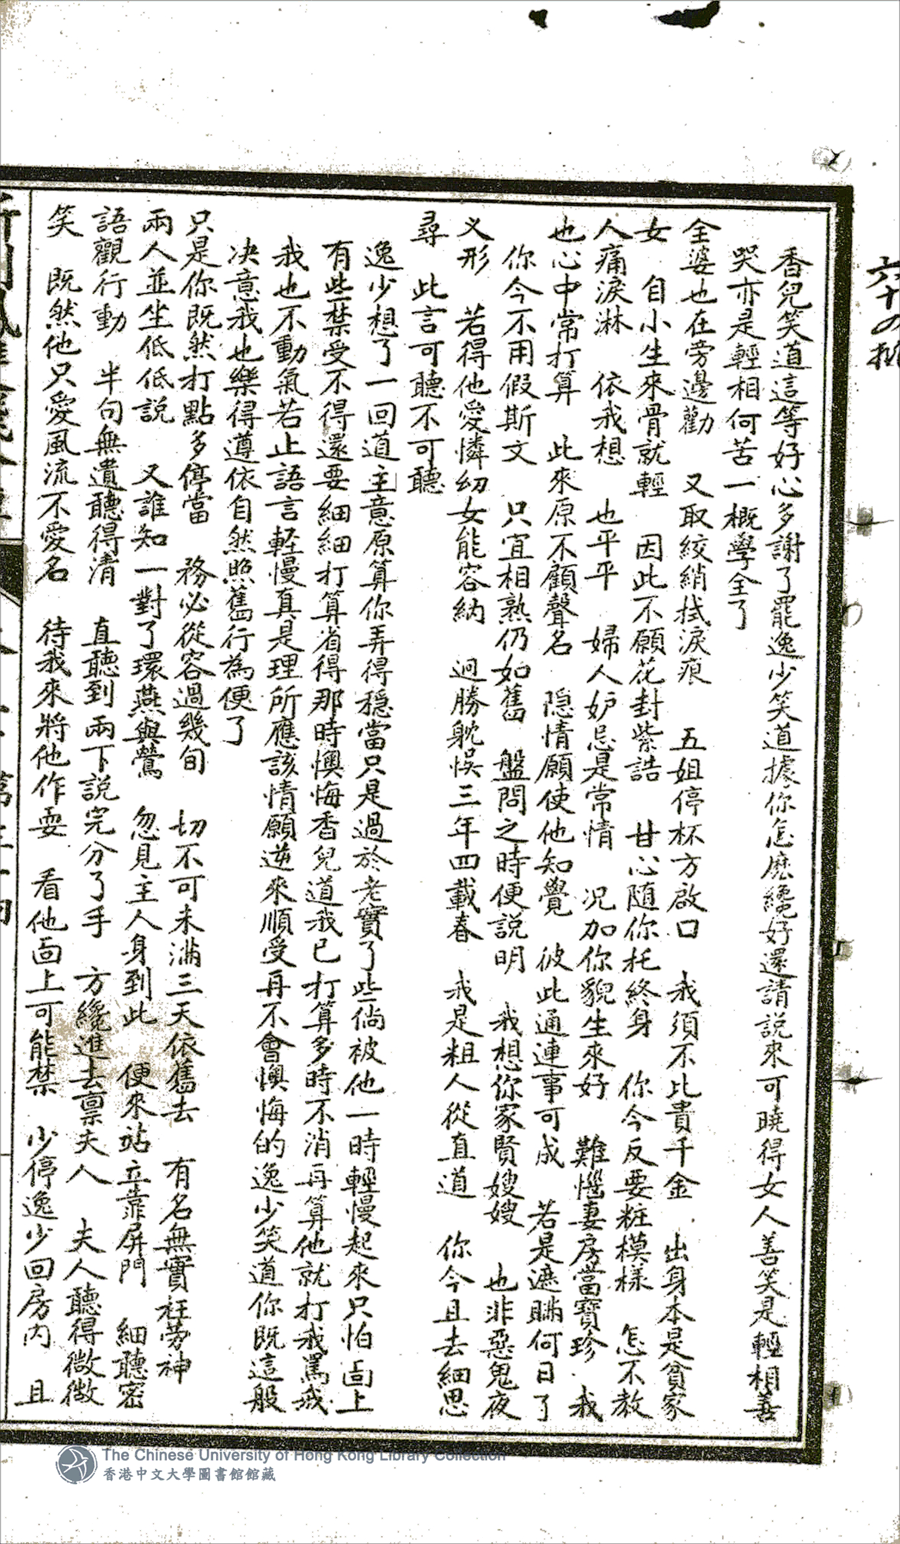 六十
香兒笑道這等好心多謝了罷逸少笑道據你怎麽纔好還請說來可曉得女人善笑是輕相善
哭亦是輕相何苦一概學全了
全婆也在旁邊勸　又取絞綃拭淚痕　五姐停杯方啟口　我須不比貴千金　出身本是貧家
女　自小生來骨就輕　因此不願花封紫誥　甘心隨你托終身　你今反要粧模樣　怎不教
人痛淚淋　依我想　也平平　婦人妒忌是常情　况加你貌生來好　難惱妻房當寶珍　我
也心中常打算　此來原不顧聲名　隱情願使他知覺　彼此通連事可成　若是遮瞞何日了
你今不用假斯文　只宜相熟仍如舊　盤問之時便説明　我想你家賢嫂嫂　也非惡鬼夜
叉形　若得他愛憐幼女能容納　迥勝躭悞三年四載春　我是粗人從直道　你今且去細思
尋　此言可聽不可聽
逸少想了一回道主意原算你弄得穩當只是過於老實了些倘被他一時輕慢起來只怕面上
有些禁受不得還要細細打算省得那時懊悔香兒道我已打算多時不消再算他就打我罵我
我也不動氣若止語言輕慢真是理所應該情願逆來順受再不會懊悔的逸少笑道你既這般
决意我也樂得遵依自然照舊行為便了
只是你既然打點多停當　務必從容過幾旬　切不可未滿三天依舊去　有名無實枉勞神
兩人並坐低低說　又誰知一對了環燕與鶯　忽見主人身到此　便來站立靠屏門　細聽密
語觀行動　半句無遺聽得清　直聽到兩下説完分了手　方纔進去禀夫人　夫人聽得微微
笑　既然他只愛風流不愛名　待我來將他作耍　看他面上可能禁　少停逸少回房内　且
The Chinese University of Hong Kong Library Collection
香港中文大學圖書館館藏